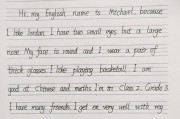 Hi, my English name is Michael, because
I like Jordan. I have two small eyes but a large
nose. My face is round and I wear a pair of
thick glasses. I like playing basketball. I am
good at Chinese and maths. I'm in Class 2, Grade 3.
I have many friends. I get on very well with my